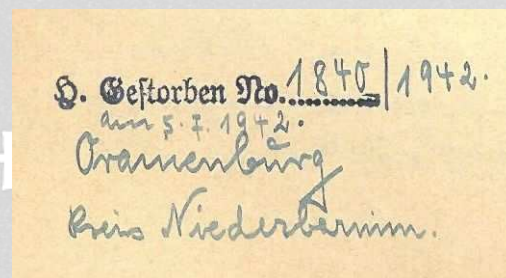 H. Gestorben No. 1840/1942.
am 5.7.1942.
Oranienburg
Kreis Niederbarnim.